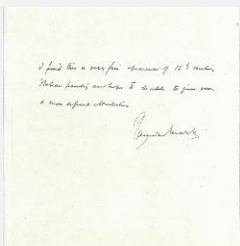 I find this a very fine specimen of 15th century
Italian painting and hope to be able to give you
a more explicit attribution